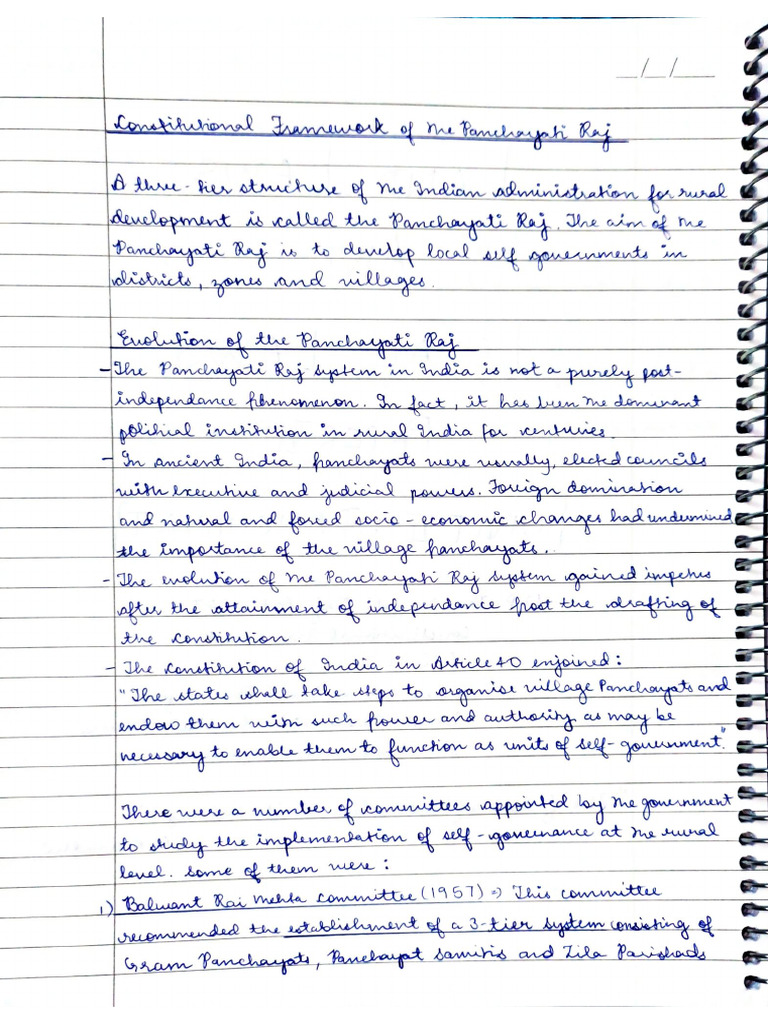 __/__/____
Constitutional Framework of the Panchayati Raj
A three-tier structure of the Indian administration for rural
development is called the Panchayati Raj. The aim of the
Panchayati Raj is to develop local self governments in
districts, zones and villages.
Evolution of the Panchayati Raj
- The Panchayati Raj system in India is not a purely post-
independance phenomenon. In fact, it has been the dominant
political institution in rural India for centuries.
- In ancient India, panchayats were usually, elected councils
with executive and judicial powers. Foreign domination
and natural and forced socio-economic changes had undermined
the importance of the village panchayats.
- The evolution of the Panchayati Raj system gained impetus
after the attainment of independence post the drafting of
the constitution.
- The constitution of India in Article 40 enjoined:
"The states shall take steps to organise village Panchayats and
endow them with such power and authority as may be
necessary to enable them to function as units of self-government."
There were a number of committees appointed by the government
to study the implementation of self-governance at the rural
level. Some of them were:
1) Balwant Rai Mehta Committee (1957) => This committee
recommended the establishment of a 3-tier system consisting of
Gram Panchayats, Panchayat Samitis and Zila Parishads